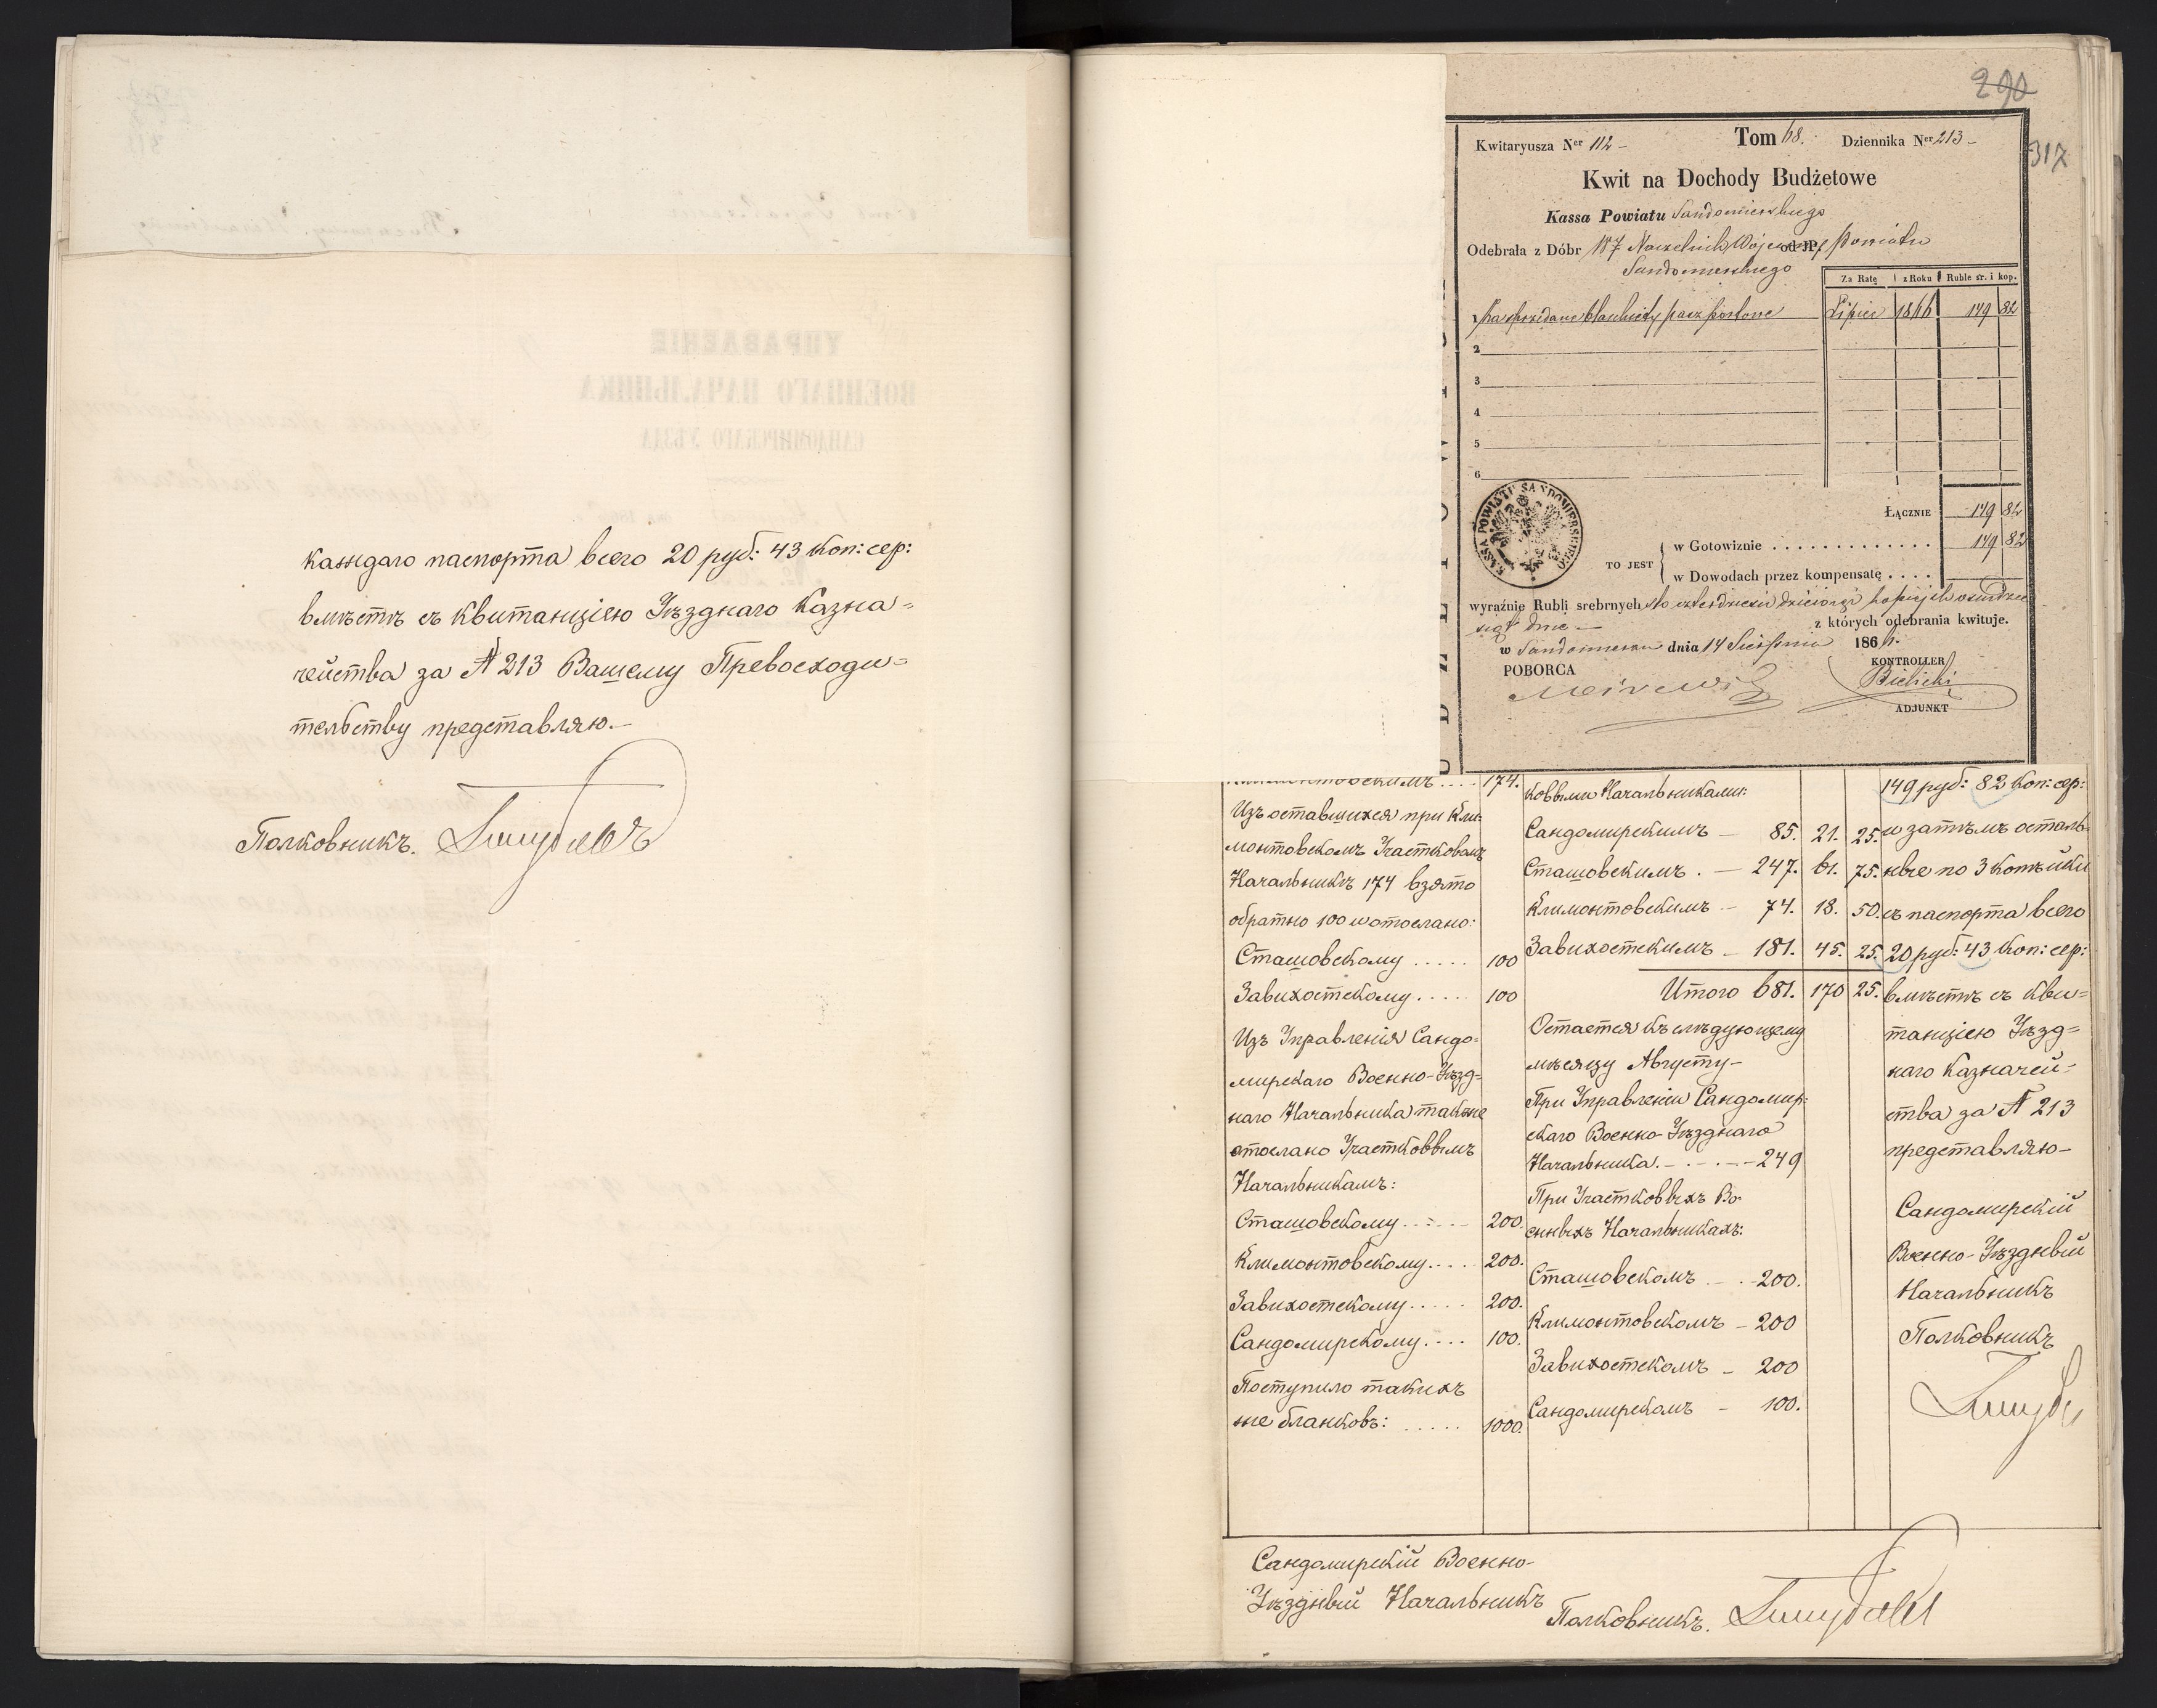 каждаго паспорта всего 20 руб: 43 коп: сер:
вмѣстѣ съ квитанціею Уѣзднаго Казна=
чейства за № 213 Вашему Превосходи=
тельству представляю.—
Полковникъ.
290
317
Kwitaryusza Ner 112 — Tom 68. Dziennika Ner 213 —
Kwit na Dochody Budżetowe
Kassa Powiatu Sandomierskiego
Odebrała z Dóbr 187 Naczelnik Wojenny od JP. Powiatu
Sandomierskiego
Za Ratę z Roku Ruble sr. i kop.
1 Za sprzedane blankiety paszportowe Lipiec 1866 149 82
2
3
4
5
6
KASSA POWIATU SANDOMIERSKIEGO
Łącznie 149 82
TO JEST
w Gotowiznie . . . . . . . . . . . . . 149 82
w Dowodach przez kompensatę . . . .
wyraźnie Rubli srebrnych sto czterdzieści dziewięć kopiejek ośmdzie
siąt dwie — z których odebrania kwituje.
w Sandomierzu dnia 14 Sierpnia 1866.
POBORCA
KONTROLLER
Bielicki
ADJUNKT
174.
Изъ оставшихся при Кли=
монтовскомъ Участковомъ
Начальникѣ 174 взято
обратно 100 и отослано:
Сташовскому ..... 100
Завихостскому ..... 100
Изъ Управленія Сандо=
мирскаго Военно-Уѣзд=
наго Начальника также
отослано Участковымъ
Начальникамъ:
Сташовскому ..... 200.
Климонтовскому .... 200.
Завихостскому ..... 200.
Сандомирскому .... 100.
Поступило такихъ
же бланковъ: ..... 1000.
ковыми Начальниками:
Сандомирскимъ — 85. 21. 25.
Сташовскимъ . — 247. 61. 75.
Климонтовскимъ — 74. 18. 50.
Завихостскимъ — 181. 45. 25.
Итого 681. 170 25.
Остается къ слѣдующему
мѣсяцу Августу —
При Управленіи Сандомир=
скаго Военно-Уѣзднаго
Начальника. — . — . — 249
При Участковыхъ Во=
енныхъ Начальникахъ:
Сташовскомъ — . — 200.
Климонтовскомъ — 200
Завихостскомъ — 200
Сандомирскомъ — 100.
149 руб: 82 коп: сер:
и затѣмъ осталь=
ные по 3 копѣйки
съ паспорта всего
20 руб: 43 коп: сер:
вмѣстѣ съ кви=
танціею Уѣзд=
наго Казначей=
ства за № 213
представляю —
Сандомирскій
Военно-Уѣздный
Начальникъ
Полковникъ
Сандомирскій Военно-
Уѣздный Начальникъ
Полковникъ.